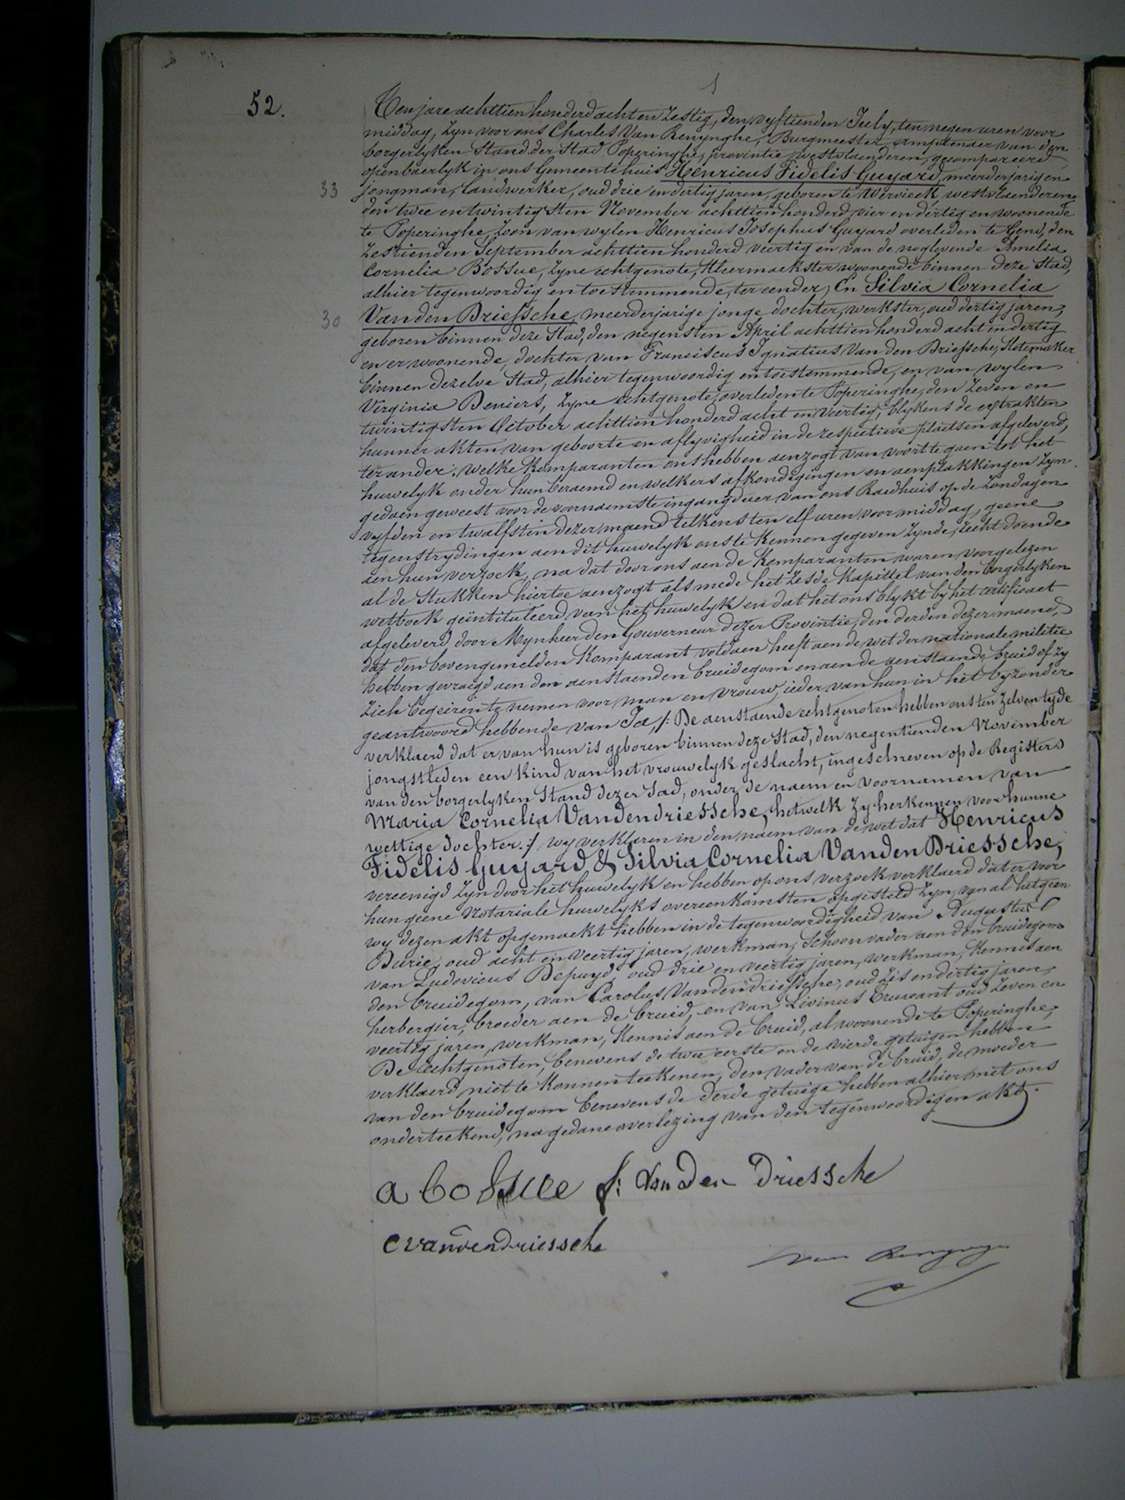 52.
Ten jare achttien honderd acht en zestig, den vyftienden July, ten negen uren voor
middag, zyn voor ons Charles Van Renynghe, Burgmeester amptenaer van den
borgerlyken Stand der Stad Poperinghe, provintie westvlaenderen, gecompareerd
openbaerlyk in ons Gemeentehuis Henricus Fidelis Guyard, meerderjarigen
33 jongman, landwerker, oud drie en dertig jaren, geboren te Wervieck westvlaenderen
den twee en twintigsten November achttien honderd vier en dertig en woonende
te Poperinghe, zoon van wylen Henricus Josephus Guyard overleden te Gend, den
zestienden September achttien honderd veertig en van de noglevende Amelia
Cornelia Bossue, zyne echtgenote, woonende binnen deze Stad,
alhier tegenwoordig en toestemmende, ter eender, En Silvia Cornelia
30 Vanden Driessche, meerderjarige jonge dochter, werkster, oud dertig jaren,
geboren binnen deze Stad, den negensten April achttien honderd acht en dertig
en er woonende, dochter van Franciscus Ignatius Van den Driessche, Slotemaker
binnen dezelve Stad, alhier tegenwoordig en toestemmende, en van wylen
Virginia Beniers, zyne echtgenote, overleden te Poperinghe, den zeven en
twintigsten October achttien honderd acht en veertig, blykens de extrakten
hunner akten van geboorte en aflyvigheid in de respective plaetsen afgeleverd,
ter ander; welke komparanten ons hebben aenzogt van voort te gaen tot het
huwelyk onder hun beraemd en welkers afkondigingen en aenplakkingen zyn
gedaen geweest voor de voornaemste ingangdeur van ons Raedhuis op de zondagen
vyfden en twalfsten dezer maend telkens ten elf uren voor middag, geene
tegenstrydingen aen dit huwelyk ons te kennen gegeven zynde, recht doende
aen hun verzoek, na dat door ons aen de komparanten waren voorgelezen
al de stukken hiertoe aenzogt als mede het zesde kapittel van den borgerlyken
wetboek geïntituleerd van het huwelyk en dat het ons blykt by het certificaet
afgeleverd door Mynheer den Gouverneur dezer Provintie, den derden dezer maend,
dat den bovengemelden komparant voldaen heeft aen de wet der nationale militie
hebben gevraegd aen den aenstaenden bruidegom en aen de aenstaende bruid of zy
zich begeiren te nemen voor man en vrouw, ieder van hun in het byzonder
geantwoord hebbende van Ja, /: De aenstaende echtgenoten hebben ons ten zelven tyde
verklaerd dat er van hun is geboren binnen deze Stad, den negentienden November
jongstleden een kind van het vrouwelyk geslacht, ingeschreven op de Registers
van den borgerlyken Stand dezer Stad, onder de naem en voornamen van
Maria Cornelia Vandendriessche, hetwelk zy herkennen voor hunne
wettige dochter. / wy verklaren in den naem van de wet dat Henricus
Fidelis Guyard & Silvia Cornelia Vanden Driessche,
vereenigd zyn door het huwelyk en hebben op ons verzoek verklaerd dat er voor
hun geene Notariale huwelyks overeenkomsten opgesteld zyn, van al hetgeen
wy dezen akt opgemaekt hebben in de tegenwoordigheid van Augustus
Durie, oud acht en veertig jaren, werkman, Schoonvader aen den bruidegom
van Ludovicus Depuyd, oud drie en veertig jaren, werkman, kennis aen
den bruidegom, van Carolus Vandendriessche, oud zes en dertig jaren,
herbergier, broeder aen de bruid, en van Livinus Cruwant oud zeven en
veertig jaren, werkman, kennis aen de bruid, al woonende te Poperinghe,
De echtgenoten, benevens de twee eerste en de vierde getuigen hebben
verklaerd niet te konnen teekenen, den vader van de bruid, de moeder
van den bruidegom benevens de derde getuige hebben alhier met ons
onderteekend, na gedane overlezing van den tegenwoordigen akt.
a bossue f: Van Den Driessche
c vandendriessche
Van Renynghe